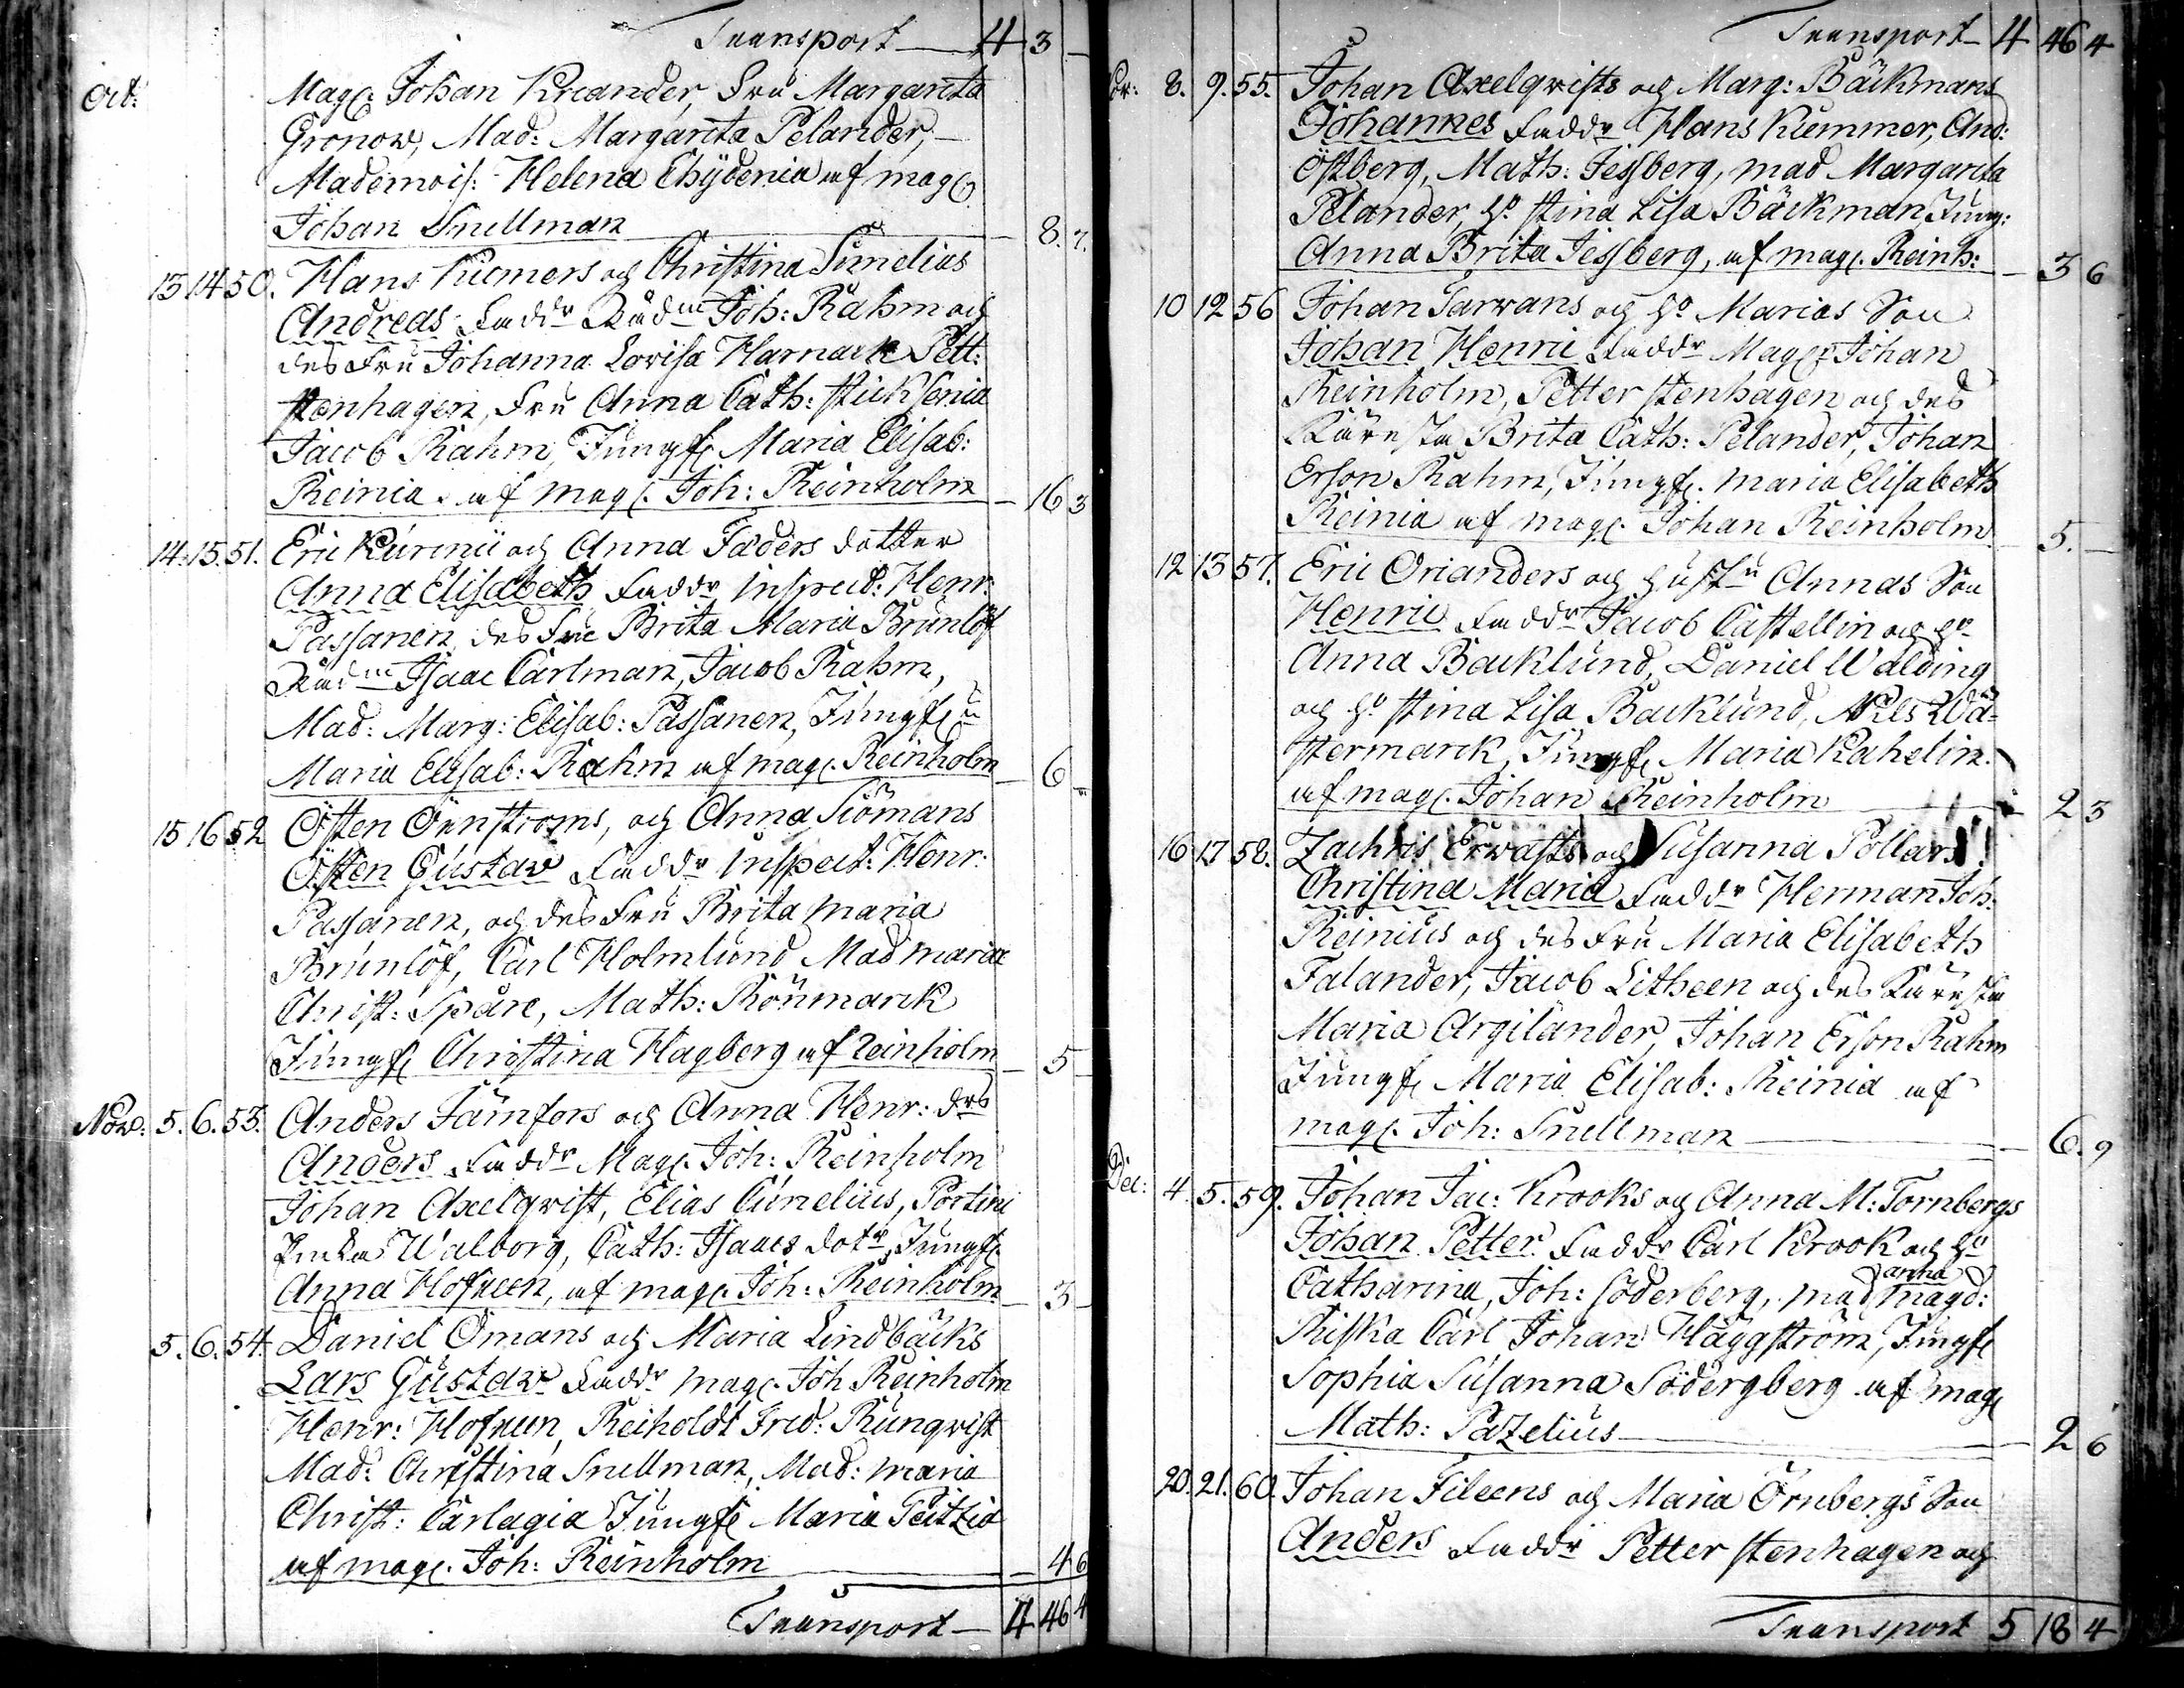 Transport — 4 3 —
Oct: Mag. Johan Kreander, Fru Margareta
Gronow, Mad: Margareta Pelander, —
Mademois: Helena Chydenia af mag.
Johan Snellman — 8. 7.
13 14 50. Hans Kumers och Christina Sunelias
Andreas Faddr Rådm Joh: Rahm och
des Fru Johanna Lovisa Harnack Pett:
Stenhagen, Fru Anna Cath: Sticksenia
Jacob Rahm, Jungf. Maria Elisab:
Reinia. af mag. Joh: Reinholm — 16 3
14. 15. 51. Eric Kurmii och Anna Fäders dotter
Anna Elisabeth Faddr Inspect: Henr:
Passanen, des Fru Brita Maria Brunlöf
Rådm Isaac Carlman, Jacob Rahm,
Mad: Marg: Elisab: Passanen, Jungf.
Maria Elisab: Rahm af mag. Reinholm — 6 —
15 16 52 Östen Örnströms, och Anna Siömans
Östen Gustav Faddr Inspect: Henr:
Passanen, och des Fru Brita Maria
Brunlöf, Carl Holmlund Mad Maria
Christ: Spåre, Math: Rönmarck
Jungf. Christina Hagberg af Reinholm — 5 —
Nov: 5. 6. 53. Anders Jämfors och Anna Henr: drs
Anders Faddr Mag. Joh: Reinholm
Johan Axelqvist, Elias Cunelius, Portin
Enka Walborg, Cath: Isaacs dotr, Jungf.
Anna Hofreen, af mag. Joh: Reinholm — 3 —
5. 6. 54. Daniel Ömans och Maria Lindbäcks
Lars Gustav Faddr mag. Joh Reinholm
Henr: Hofreen, Reiholdt Fred: Runqvist
Mad: Christina Snellman, Mad: Maria
Christ: Carlagia Jungf. Maria Teitzia
af mag. Joh: Reinholm — 4 6
Transport — 4 46 4
Transport — 4 46 4
8. 9. 55. Johan Axelqvists och Marg: Bäckmans
Johannes Faddr Hans Kummer, And:
Östberg, Math: Jessberg, mad Margareta
Pelander, ho Stina Lisa Bäckman, Jung:
Anna Brita Jessberg, af mag. Reinh: — 3 6
10 12 56 Johan Sarvans och ho Marias Son
Johan Henric Faddr Mag. Johan
Reinholm, Petter Stenhagen och des
Käresta Brita Cath: Pelander, Johan
Erson Rahm, Jungf. Maria Elisabeth
Reinia af mag. Johan Reinholm — 5. —
12 13 57. Eric Orianders och hustru Annas Son
Henric Faddr Jacob Castellin och ho
Anna Backlund, Daniel Walding
och ho Stina Lisa Backlund, Nils Wä-
stermarck, Jungf. Maria Kahelin.
af mag. Johan Reinholm — 2 3
16 17 58. Zachris Erwasts och Susanna Pollars
Christina Maria Faddr Herman Joh:
Reinius och des Fru Maria Elisabeth
Falander, Jacob Litheen och des Käresta
Maria Argilander, Johan Erson Rahm
Jungf. Maria Elisab: Reinia af
mag. Joh: Snellman — 6. 9
Dec: 4. 5. 59. Johan Jac: Krooks och Anna M: Tornbergs
Johan Petter Faddr Carl Krook och ho
Catharina, Joh: Söderberg, mad anna Magd:
Riska Carl Johan Häggström, Jungf.
Sophia Susanna Södergberg af mag.
Math: Pazelius — 2 6
20. 21. 60. Johan Fileens och Maria Örnbergs Son
Anders Faddr Petter Stenhagen och
Transport 5 18 4